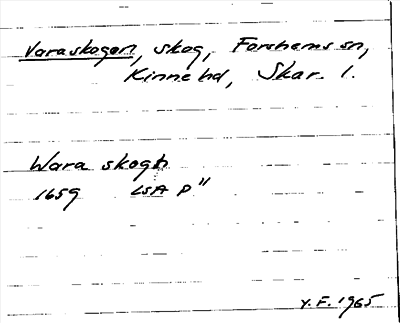 Varaskogen, skog, Forshems sn,
Kinne hd, Skar. l.
Wara skogh
1659 LSA P"
Y.F. 1965